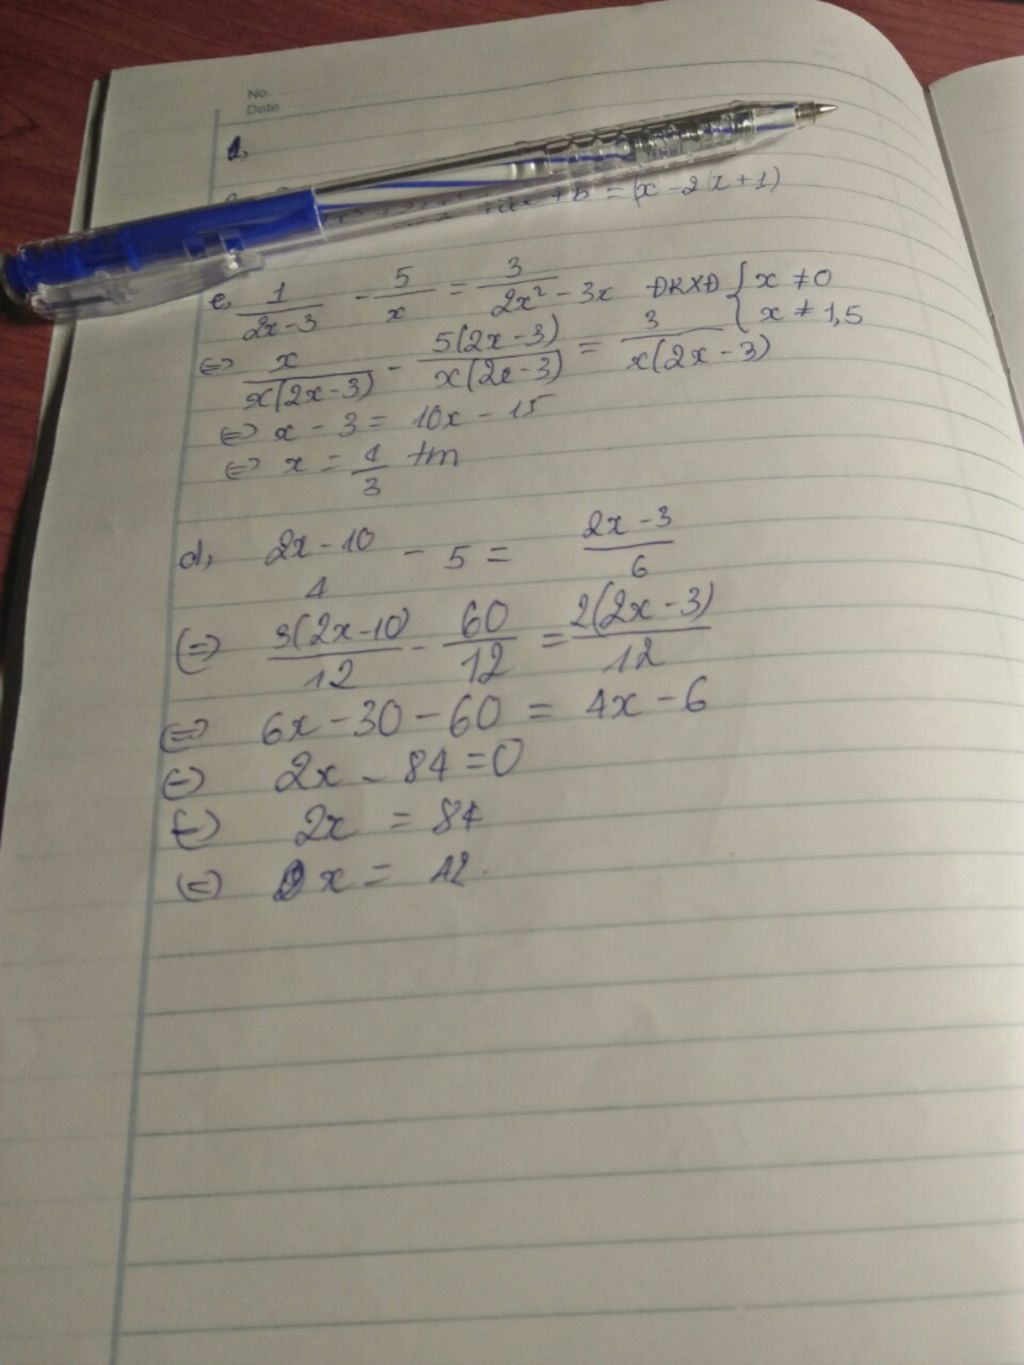 No.
Date
1,
+ b = (x - 2)(x + 1)
c, 1/(2x-3) - 5/x = 3/(2x² - 3x) ĐKXĐ { x ≠ 0
x ≠ 1,5
<=> x/(x(2x-3)) - 5(2x-3)/(x(2x-3)) = 3/(x(2x-3))
<=> x - 3 = 10x - 15
<=> x = 4/3 tm
d, (2x-10)/4 - 5 = (2x-3)/6
<=> 3(2x-10)/12 - 60/12 = 2(2x-3)/12
<=> 6x - 30 - 60 = 4x - 6
<=> 2x - 84 = 0
<=> 2x = 84
<=> x = 42.